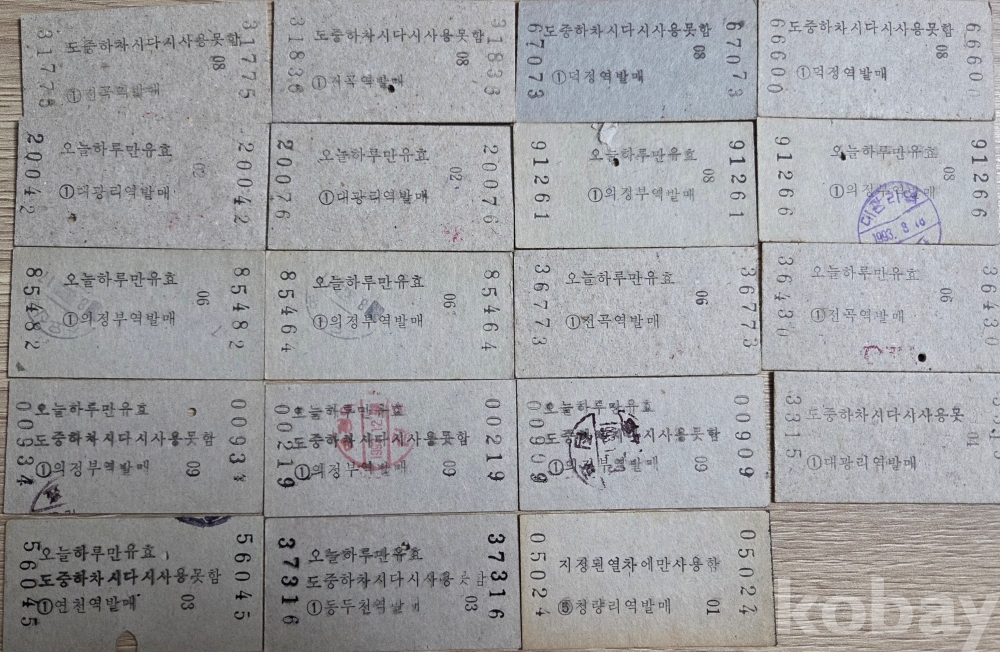 도중하차시다시사용못함
08
①전곡역발매
31775
도중하차시다시사용못함
08
①전곡역발매
도중하차시다시사용못함
08
①덕정역발매
67073
67073
도중하차시다시사용못함
08
①덕정역발매
66600
오늘하루만유효
02
①대광리역발매
20042
20042
오늘하루만유효
02
①대광리역발매
20076
20076
오늘하루만유효
08
①의정부역발매
91261
91261
오늘하루만유효
08
①의정부역발매
91266
91266
대광리역
1993. 8. 10
오늘하루만유효
06
①의정부역발매
85482
85482
오늘하루만유효
06
①의정부역발매
85464
85464
오늘하루만유효
06
①전곡역발매
36773
36773
오늘하루만유효
06
①전곡역발매
36430
36430
오늘하루만유효
도중하차시다시사용못함
①의정부역발매
09
00934
00934
오늘하루만유효
도중하차시다시사용못함
①의정부역발매
09
00219
00219
오늘하루만유효
도중하차시다시사용못함
①의정부역발매
09
00909
00909
도중하차시다시사용못
01
①대광리역발매
3315
오늘하루만유효
도중하차시다시사용못함
①연천역발매
03
56045
56045
오늘하루만유효
도중하차시다시사용못함
①동두천역발매
03
37316
37316
지정된열차에만사용함
⑤청량리역발매
01
05024
05024
kobay